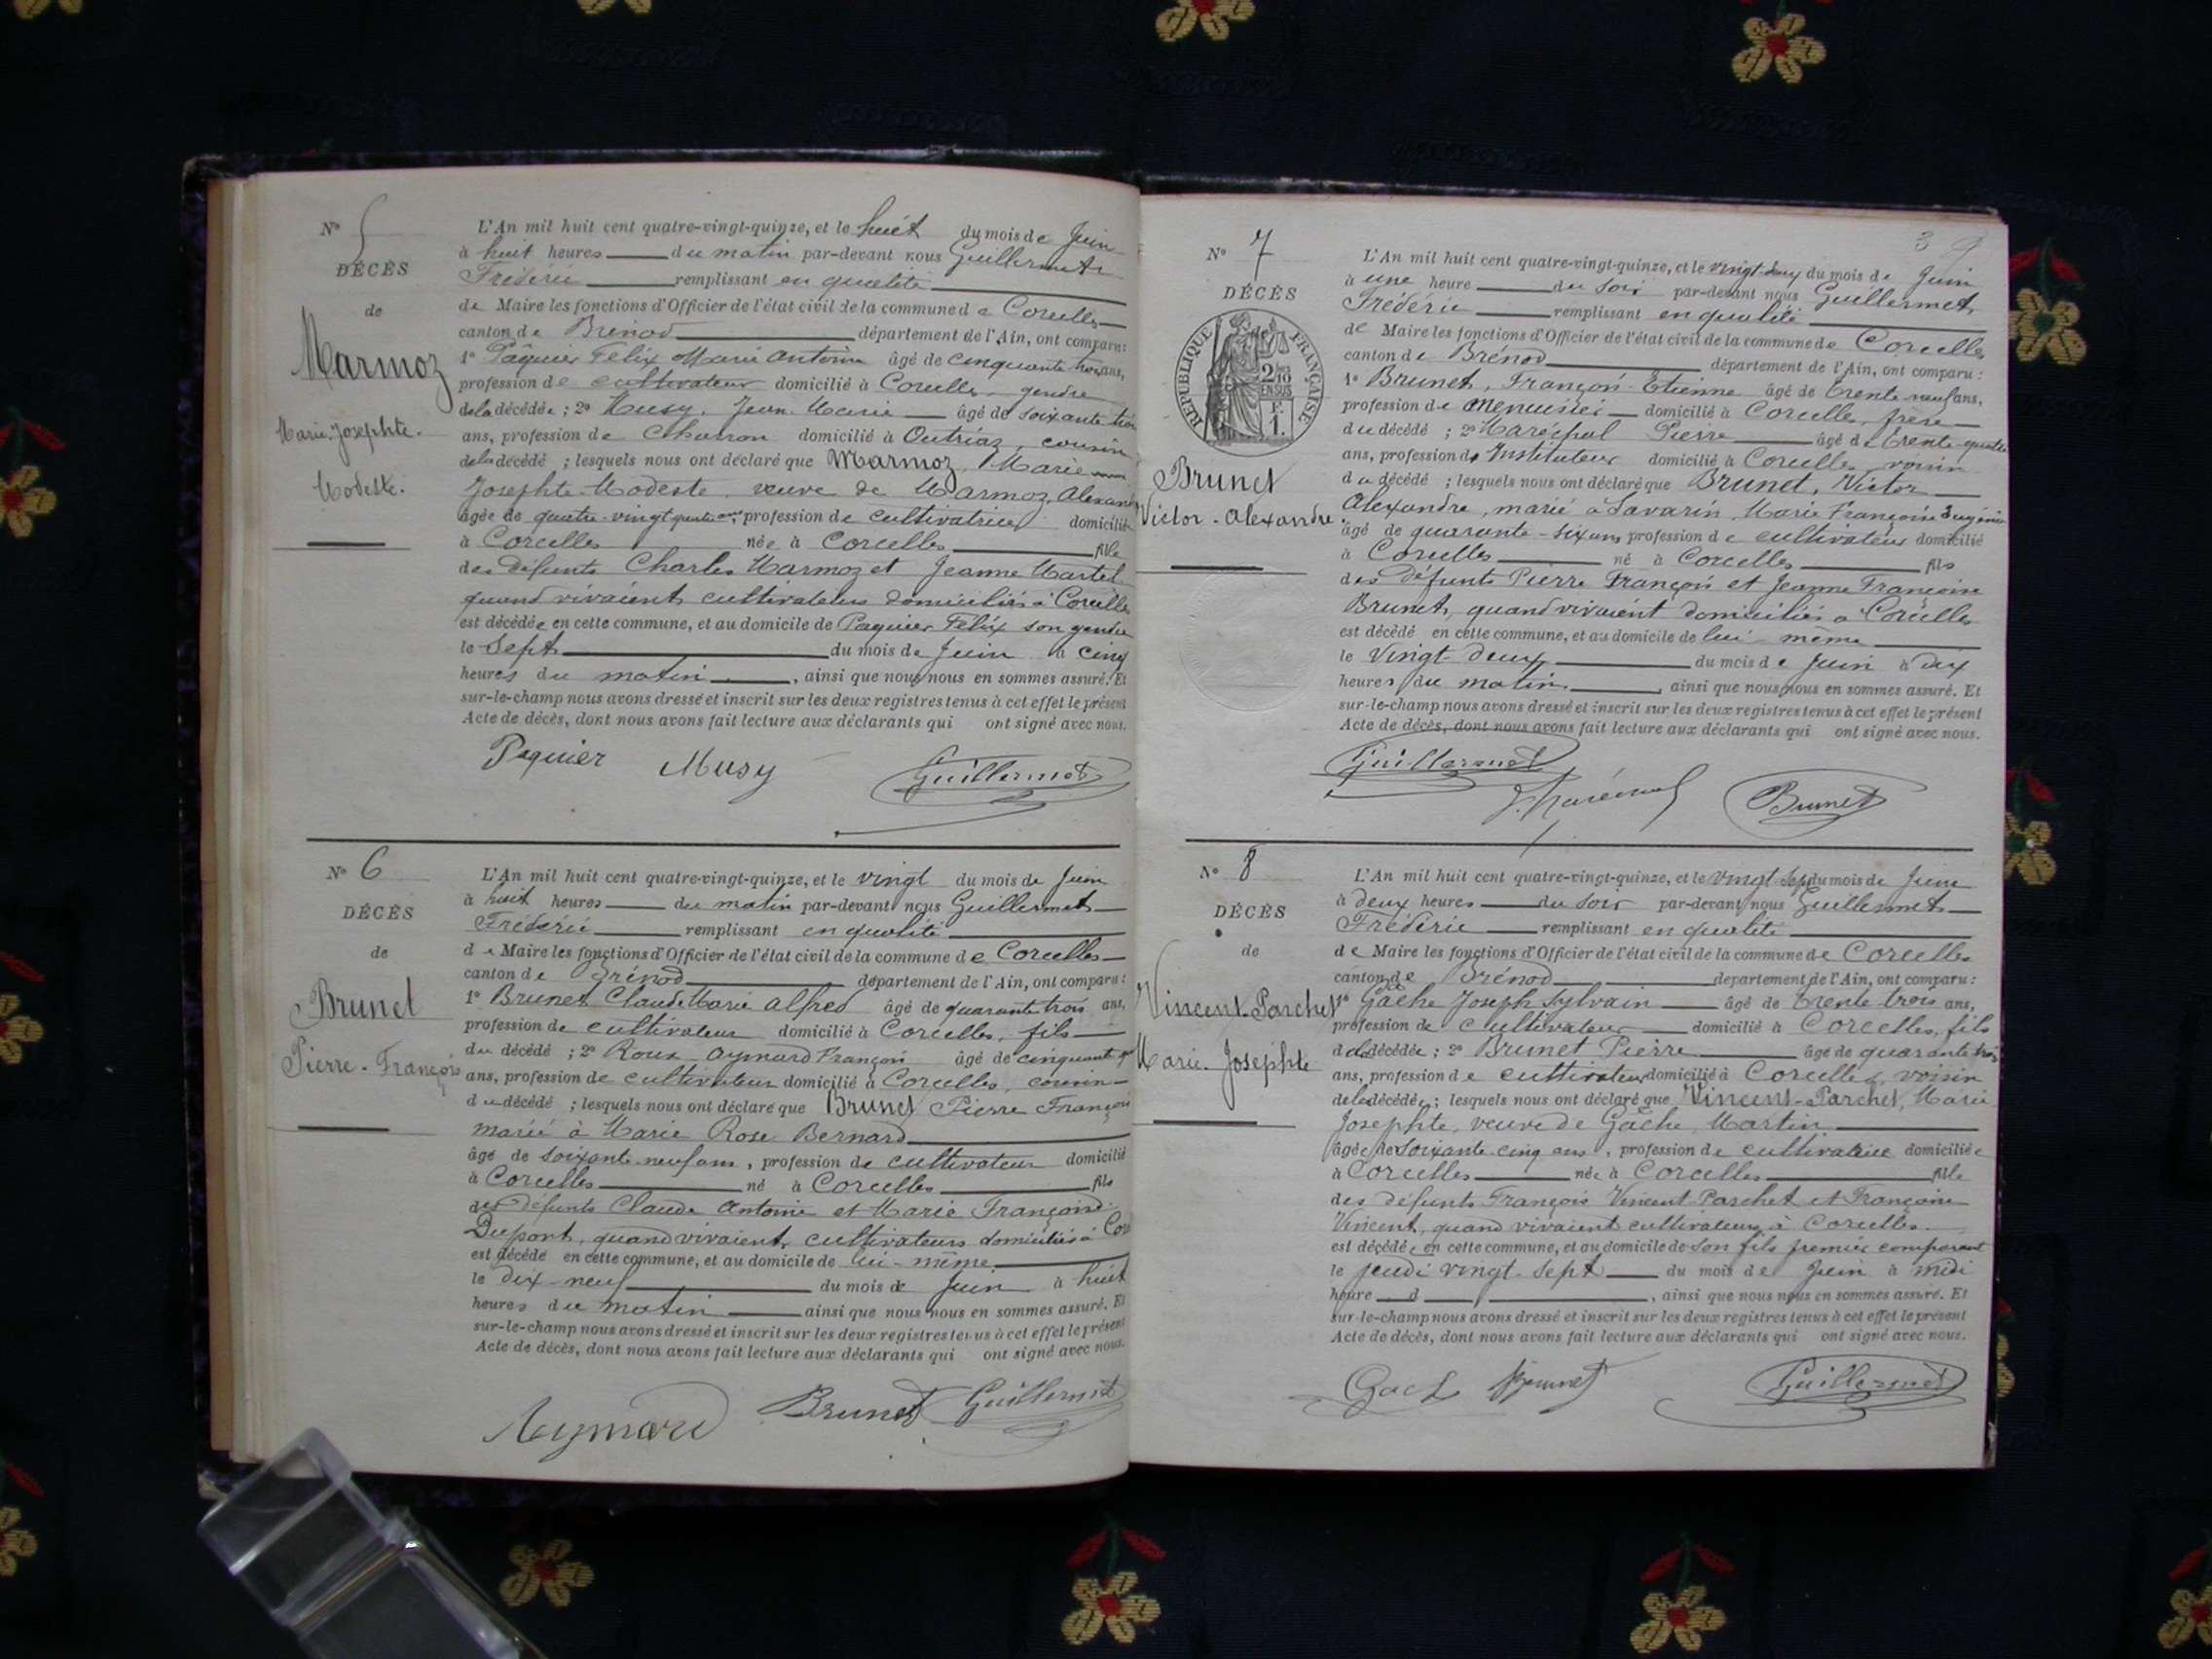 Nº 5
DÉCÈS
de
Marmoz
Marie-Josephte-
Modeste.
L'An mil huit cent quatre-vingt-quinze, et le huit du mois de Juin
à huit heures du matin par-devant nous Guillermet
Frédéric remplissant en qualité
de Maire les fonctions d'Officier de l'état civil de la commune de Corcelles
canton de Brénod département de l'Ain, ont comparu:
1º Pâquier Félix Marie Antoine âgé de cinquante trois ans,
profession de cultivateur domicilié à Corcelles, gendre
de la décédée ; 2º Musy, Jean Marie âgé de soixante trois
ans, profession de charron domicilié à Outriaz, cousin
de la décédé ; lesquels nous ont déclaré que Marmoz, Marie
Josephte-Modeste, veuve de Marmoz, Alexandre
âgée de quatre-vingt quatre ans, profession de cultivatrice domicilié
à Corcelles née à Corcelles fille
des défunts Charles Marmoz et Jeanne Martel
quand vivaient cultivateurs domiciliés à Corcelles
est décédée en cette commune, et au domicile de Paquier Félix son gendre
le sept du mois de Juin à cinq
heures du matin, ainsi que nous nous en sommes assuré. Et
sur-le-champ nous avons dressé et inscrit sur les deux registres tenus à cet effet le présent
Acte de décès, dont nous avons fait lecture aux déclarants qui ont signé avec nous.
Paquier Musy Guillermet
Nº 6
DÉCÈS
de
Brunet
Pierre-François
L'An mil huit cent quatre-vingt-quinze, et le vingt du mois de Juin
à huit heures du matin par-devant nous Guillermet
Frédéric remplissant en qualité
de Maire les fonctions d'Officier de l'état civil de la commune de Corcelles
canton de Brénod département de l'Ain, ont comparu:
1º Brunet Claude Marie Alfred âgé de quarante trois ans,
profession de cultivateur domicilié à Corcelles, fils
du décédé ; 2º Roux Aymard François âgé de cinquante
ans, profession de cultivateur domicilié à Corcelles, cousin
du décédé ; lesquels nous ont déclaré que Brunet Pierre François
marié à Marie Rose Bernard
âgé de soixante-neuf ans, profession de cultivateur domicilié
à Corcelles né à Corcelles fils
des défunts Claude Antoine et Marie Françoise
Dupont, quand vivaient, cultivateurs domiciliés à Cor
est décédé en cette commune, et au domicile de lui-même
le dix-neuf du mois de Juin à huit
heures du matin ainsi que nous nous en sommes assuré. Et
sur-le-champ nous avons dressé et inscrit sur les deux registres tenus à cet effet le présent
Acte de décès, dont nous avons fait lecture aux déclarants qui ont signé avec nous.
Aymard Brunet Guillermet
39
Nº 7
DÉCÈS
de
RÉPUBLIQUE FRANÇAISE
2/10
EN SUS
F.
1.
Brunet
Victor-Alexandre
L'An mil huit cent quatre-vingt-quinze, et le vingt-deux du mois de Juin
à une heure du soir par-devant nous Guillermet
Frédéric remplissant en qualité
de Maire les fonctions d'Officier de l'état civil de la commune de Corcelles
canton de Brénod département de l'Ain, ont comparu:
1º Brunet, François-Etienne âgé de trente-neuf ans,
profession de menuisier domicilié à Corcelles, frère
du décédé ; 2º Maréchal Pierre âgé de trente-quatre
ans, profession de Instituteur domicilié à Corcelles, voisin
du décédé ; lesquels nous ont déclaré que Brunet, Victor
Alexandre, marié à Savarin, Marie Françoise Eugénie
âgé de quarante-six ans profession de cultivateur domicilié
à Corcelles né à Corcelles fils
des défunts Pierre François et Jeanne Françoise
Brunet, quand vivaient domiciliés à Corcelles
est décédé en cette commune, et au domicile de lui-même
le Vingt-deux du mois de Juin à dix
heures du matin, ainsi que nous nous en sommes assuré. Et
sur-le-champ nous avons dressé et inscrit sur les deux registres tenus à cet effet le présent
Acte de décès, dont nous avons fait lecture aux déclarants qui ont signé avec nous.
Guillermet
P. Maréchal Brunet
Nº 8
DÉCÈS
de
Vincent-Parchet
Marie-Josephte
L'An mil huit cent quatre-vingt-quinze, et le vingt-sept du mois de Juin
à deux heures du soir par-devant nous Guillermet
Frédéric remplissant en qualité
de Maire les fonctions d'Officier de l'état civil de la commune de Corcelles
canton de Brénod département de l'Ain, ont comparu:
1º Gache Joseph Sylvain âgé de trente trois ans,
profession de cultivateur domicilié à Corcelles, fils
de la décédée ; 2º Brunet Pierre âgé de quarante trois
ans, profession de cultivateur domicilié à Corcelles, voisin
de la décédée ; lesquels nous ont déclaré que Vincent-Parchet, Marie
Josephte, veuve de Gâche, Martin
âgée de soixante-cinq ans, profession de cultivatrice domiciliée
à Corcelles née à Corcelles fille
des défunts François Vincent-Parchet et Françoise
Vincent, quand vivaient cultivateurs à Corcelles.
est décédée en cette commune, et au domicile de son fils premier comparant
le jeudi vingt-sept du mois de Juin à midi
heure d , ainsi que nous nous en sommes assuré. Et
sur-le-champ nous avons dressé et inscrit sur les deux registres tenus à cet effet le présent
Acte de décès, dont nous avons fait lecture aux déclarants qui ont signé avec nous.
Gach Brunet Guillermet